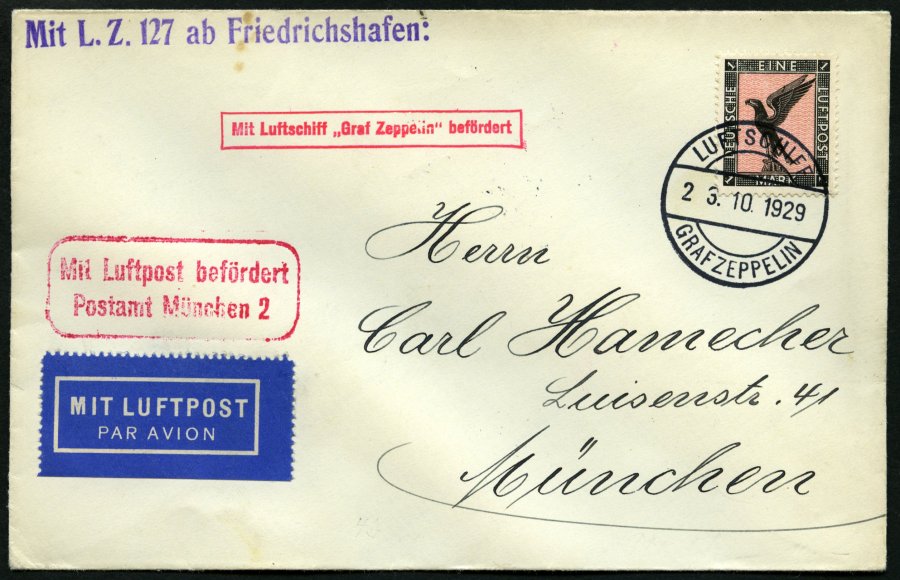 Mit L. Z. 127 ab Friedrichshafen:
Mit Luftschiff „Graf Zeppelin“ befördert
1 EINE 1
DEUTSCHE
LUFTPOST
1 MARK 1
LUFTSCHIFF
23.10.1929
GRAF ZEPPELIN
Herrn
Carl Hamecher
Luisenstr. 41
München
Mit Luftpost befördert
Postamt München 2
MIT LUFTPOST
PAR AVION